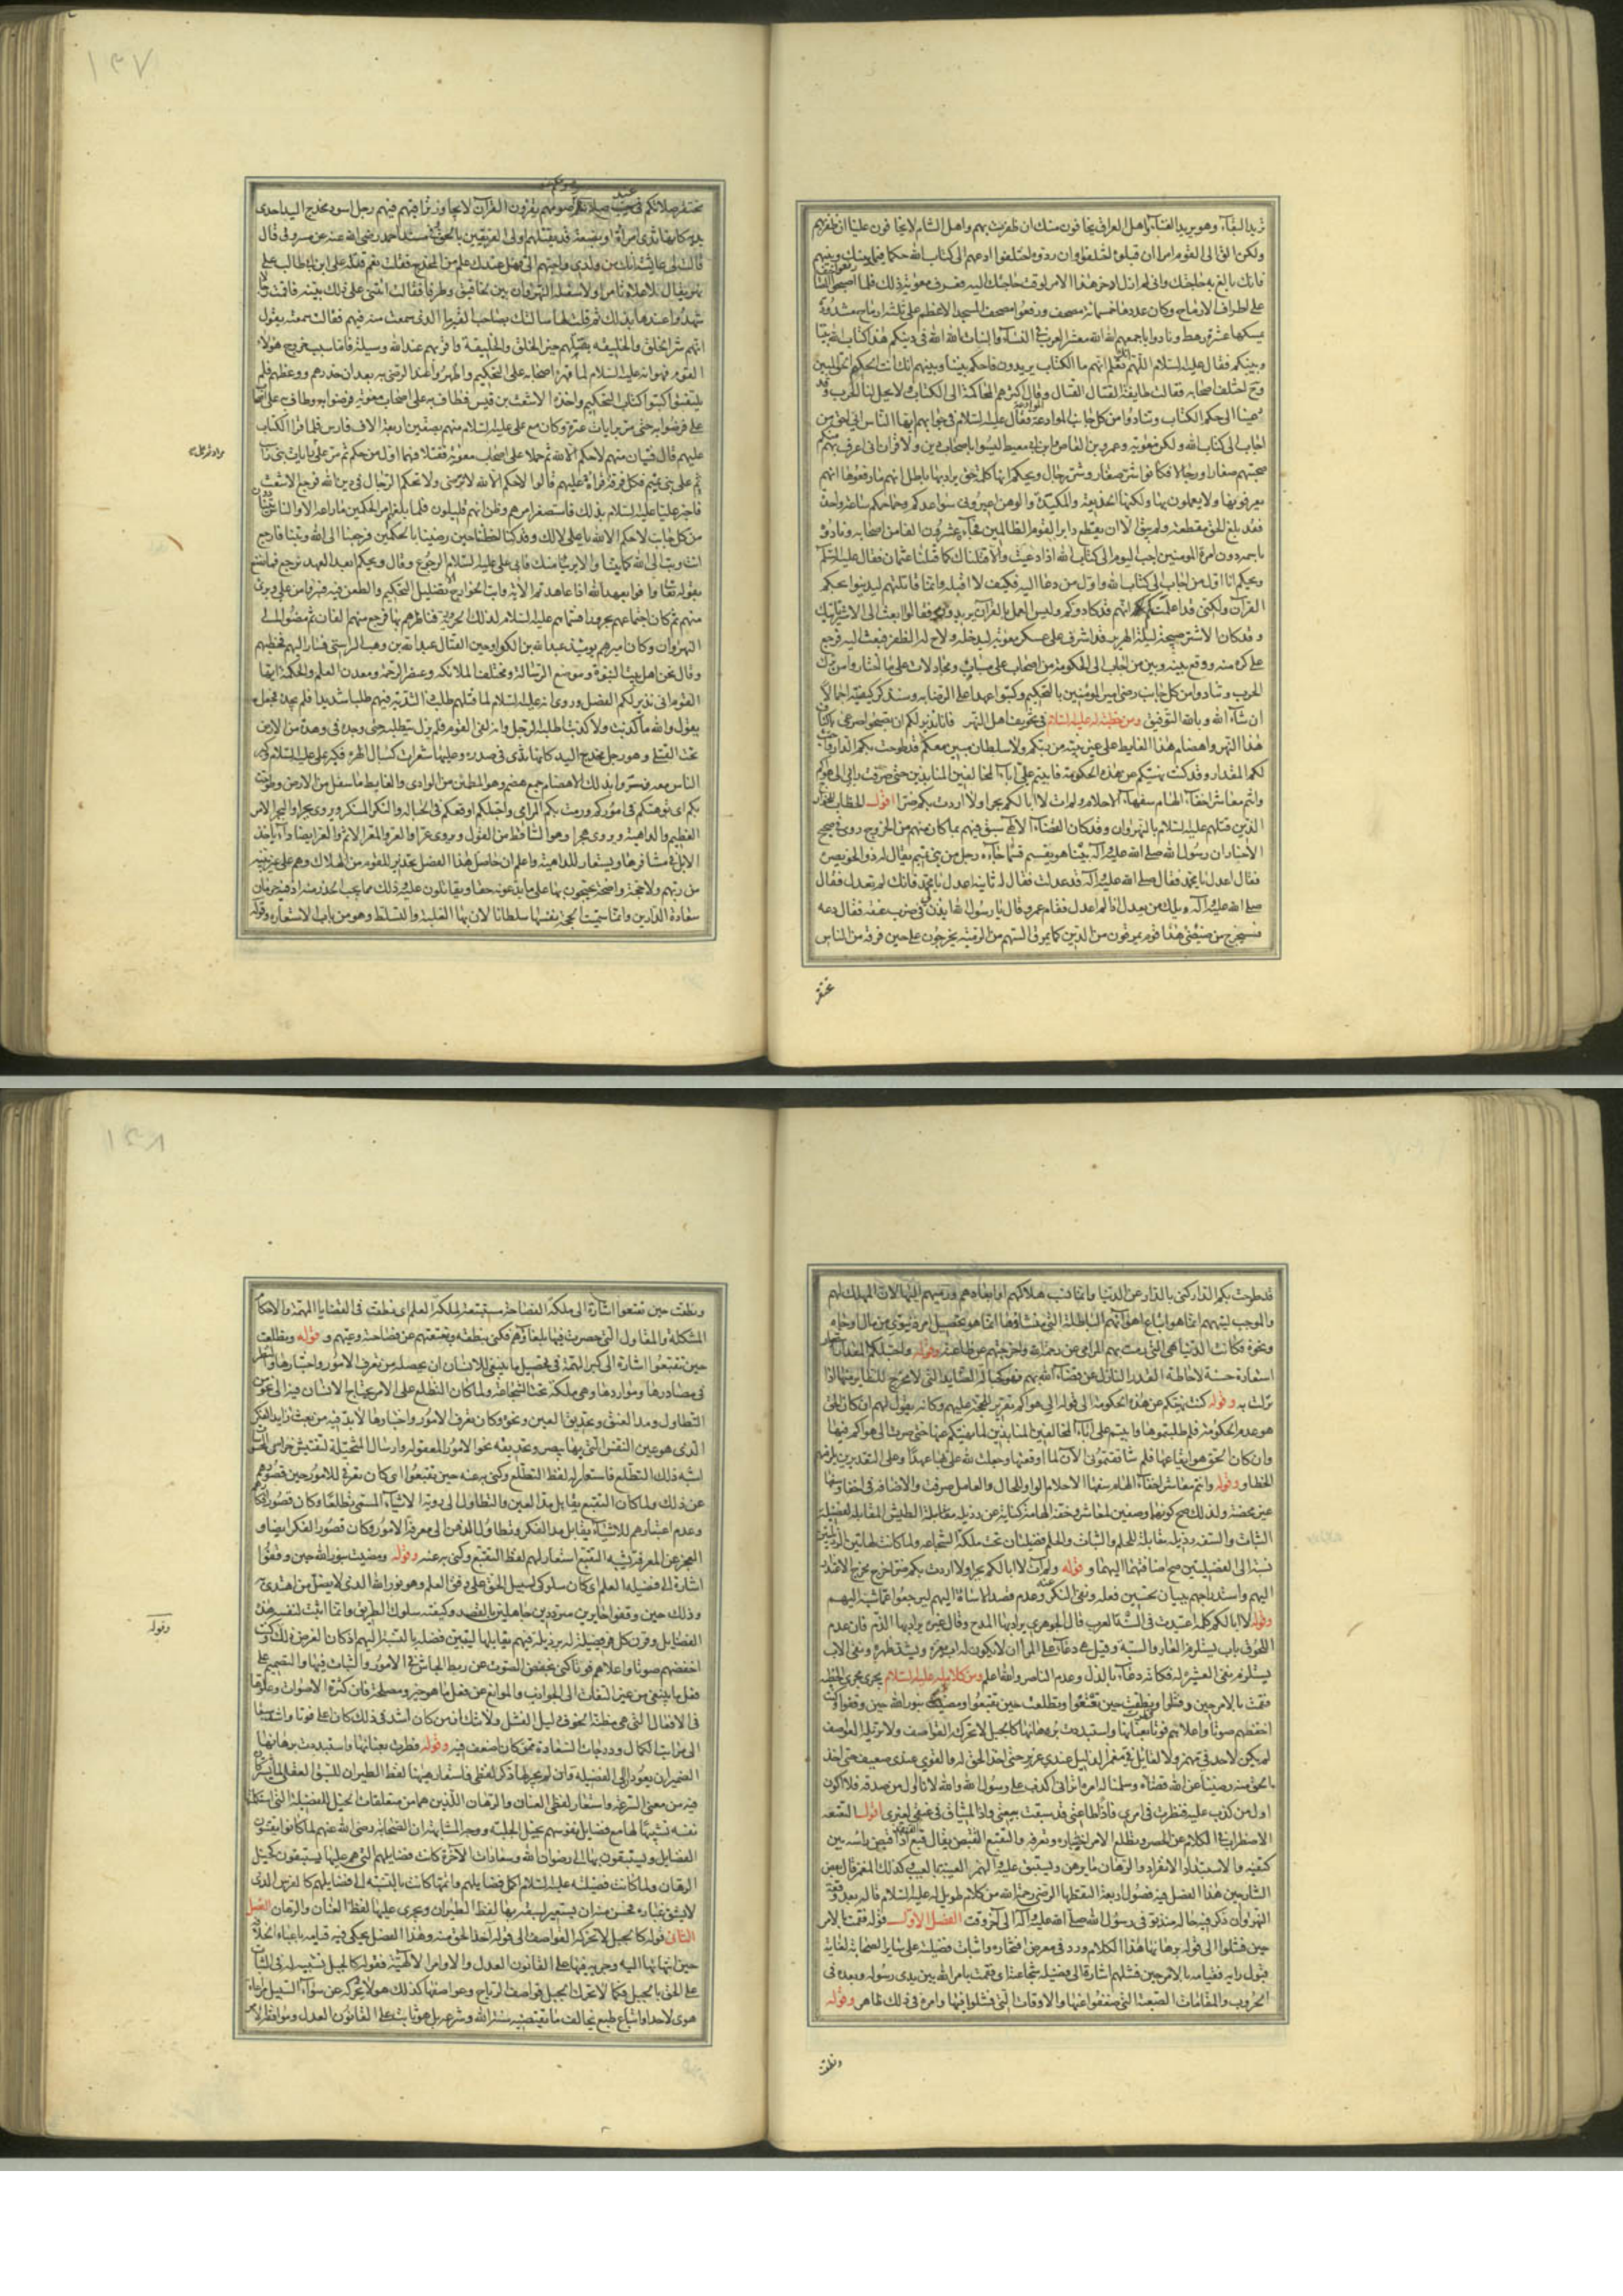 تريد البقاء وهو يريد الفناء واهل العراق يخافون منك ان ظفرت بهم واهل الشام لا يخافون عليا ان ظفر بهم
ولكن الق الى القوم امرا ان قبلوه اختلفوا وان ردوه اختلفوا ادعهم الى كتاب الله حكما فيما بينك وبينهم
فانك بالغ به حاجتك وانى لم ازل ادخر هذا الامر لوقت حاجتك اليه فعرف معوية ذلك فلما اصبحوا
على اطراف الارماح وكان عددها خمسمائة مصحف ورفعوا مصحف المسجد الاعظم على ثلثة ارماح مشدودة
يمسكها عشرة رهط ونادوا باجمعهم الله الله معشر العرب فى النساء والبنات الله الله فى دينكم هذا كتاب الله بيننا
وبينكم فقال عليه السلام اللهم انك تعلم انهم ما الكتاب يريدون فاحكم بيننا وبينهم انك انت الحكيم الحق المبين
وح اختلف اصحابه فقالت طايفة القتال القتال وقال اكثرهم المحاكمة الى الكتاب ولا يحل لنا الحرب وقد
دعينا الى حكم الكتاب وتنادوا من كل جانب الموادعة فقال عليه السلام فى جوابهم ايها الناس انى احق من
اجاب الى كتاب الله ولكن معوية وعمرو بن العاص وابن ابى معيط ليسوا باصحاب دين ولا قران انى اعرف بهم منكم
صحبتهم صغارا ورجالا فكانوا شر صغار وشر رجال ويحكم انها كلمة حق يراد بها باطل انهم ما رفعوها انهم
يعرفونها ولا يعملون بها ولكنها الخديعة والمكيدة والوهن اعيرونى سواعدكم وجماجمكم ساعة واحدة
فقد بلغ الحق مقطعه ولم يبق الا ان يقطع دابر القوم الظالمين فجاء عشرون الفا من اصحابه ونادوه
باسمه دون امرة المومنين اجب اليوم الى كتاب الله اذا دعيت والا قتلناك كما قتلنا عثمان فقال عليه السلم
ويحكم انا اول من اجاب الى كتاب الله واول من دعا اليه فكيف لا اقبله وانما قاتلتهم ليدينوا بحكم
القرآن ولكنى قد اعلمتكم انهم قد كادوكم وليس العمل بالقرآن يريدون فقالوا ابعث الى الاشتر ياتيك
وقد كان الاشتر صبيحة ليلة الهرير قد اشرف على عسكر معوية ليدخله ولاح له الظفر فبعث اليه فرجع
على كره منه ووقع بينه وبين من اجاب الى الحكومة من اصحاب على سباب ومجادلات على ما اشار وامن ترك
الحرب وتنادوا من كل جانب رضى امير المومنين بالتحكيم وكتبوا عهدا على الرضا به وسنذكر كيفيته اجمالا
ان شاء الله وبالله التوفيق ومن خطبة له عليه السلام فى تخويف اهل النهر فانا نذير لكم ان تصبحوا صرعى باثناء
هذا النهر واهضام هذا الغايط على غير بينة من ربكم ولا سلطان مبين معكم قد طوحت بكم الدار
لكم المقدار وقد كنت نهيتكم عن هذه الحكومة فابيتم على اباء المخالفين المنابذين حتى صرفت رايى الى هواكم
وانتم معاشر اخفاء الهام سفهاء الاحلام ولم ات لا ابا لكم بجرا ولا اردت بكم ضرا اقول الخطاب للخوارج
الذين قتلهم عليه السلام بالنهروان وقد كان القضاء الالهى سبق فيهم بما كان منهم من الخروج روى فى صحيح
الاخبار ان رسول الله صلى الله عليه وآله بينا هو يقسم قسما جاءه رجل من بنى تميم يقال له ذو الخويصرة
فقال اعدل يا محمد فقال صلى الله عليه وآله قد عدلت فقال له ثانية اعدل يا محمد فانك لم تعدل فقال
صلى الله عليه وآله ويلك من يعدل اذا لم اعدل فقام عمر وقال يا رسول الله ايذن لى فى ضرب عنقه فقال دعه
فسيخرج من ضئضئ هذا قوم يمرقون من الدين كما يمرق السهم من الرمية يخرجون على حين فرقة من الناس
تحتقر
١٩٧
تحتقر صلاتكم فى جنب صلاتهم وصومكم عند صومهم يقرؤن القرآن لا يجاوز تراقيهم فيهم رجل اسود مخدج اليد احدى
يديه كانها ثدى امرأة او بضعة تدردر يقتلهم اولى الفريقين بالحق وفى مسند احمد رضى الله عنه عن مسروق قال
قالت لى عايشة انك من ولدى واحبهم الى فهل عندك علم من المخدج فقلت نعم قتله على ابن ابى طالب على
نهر يقال لاعلاه تامرا ولاسفله النهروان بين لخاقيق وطرفاء فقالت ائتنى على ذلك ببينة فاقمت رجالا
شهدوا عندها بذلك ثم قلت لها سالتك بصاحب القبر ما الذى سمعت منه فيهم فقالت سمعته يقول
انهم شر الخلق والخليقة يقتلهم خير الخلق والخليقة واقربهم عند الله وسيلة فاما سبب خروج هولاء
القوم فهو انه عليه السلام لما قهره اصحابه على التحكيم واظهروا عند الرضى به بعد ان حذرهم ووعظهم فلم
يلتفتوا كتبوا كتاب التحكيم واخذه الاشعث بن قيس فطاف به على اصحاب معوية فرضوا به وطاف على اصحاب
على فرضوا به حتى مر برايات عنزة وكان مع على عليه السلام منهم بصفين اربعة الاف فارس فلما قرا الكتاب
عليهم قال فتيان منهم لا حكم الا لله ثم حملا على اصحاب معوية فقتلا فهما اول من حكم ثم مر على مراد ثم على رايات بنى راسب
ثم على بنى تميم فكل فرقة قرأه عليهم قالوا لا حكم الا لله لا نرضى ولا نحكم الرجال فى دين الله فرجع الاشعث
فاخبر عليا عليه السلام بذلك فاستصغر امرهم وظن انهم قليلون فلما بلغهم امر الحكمين ما راعه الا والناس يتنادون
من كل جانب لا حكم الا لله يا على لا لك وقد كنا اخطانا حين رضينا بالحكمين فرجعنا الى الله وتبنا فارجع
انت وتب الى الله كما تبنا والا برئنا منك فابى على عليه السلام الرجوع وقال ويحكم ابعد العهد نرجع فما نصنع
بقوله تعالى واوفوا بعهد الله اذا عاهدتم الآية وابت الخوارج الا تضليل التحكيم والطعن فيه فبرؤا من على وبرئ
منهم ثم كان اجتماعهم بحرورا فسماهم عليه السلام لذلك الحرورية فناظرهم بها فرجع منهم الفان ثم مضوا الى
النهروان وكان اميرهم يومئذ عبد الله بن الكوا وحين القتال عبد الله بن وهب الراسبى فسار اليهم فخطبهم
وقال نحن اهل بيت النبوة وموضع الرسالة ومختلف الملائكة وعنصر الرحمة ومعدن العلم والحكمة ايها
القوم انى نذير لكم الفصل وروى انه عليه السلام لما قتلهم طلب ذا الثدية فيهم طلبا شديدا فلم يجده فجعل
يقول والله ما كذبت ولا كذبت اطلبوا الرجل وانه لفى القوم فلم يزل يتطلبه حتى وجده فى وهدة من الارض
تحت القتلى وهو رجل مخدج اليد كانها ثدى فى صدره وعليها شعرات كسبال الهر فكبر على عليه السلام وكبر
الناس معه وسروا بذلك الاهضام جمع هضم وهو المطمئن من الوادى والغايط ما سفل من الارض وطوحت
بكم اى توهتكم فى اموركم ورمت بكم المرامى واحتبلكم اوقعكم فى الحبالة والنكر المنكر ويروى بجرا والبجر الامر
العظيم والداهية ويروى هجرا وهو الساقط من القول ويروى عرا والعر والمعرة الاثم والعر ايضا داء ياخذ
الابل فى مشافرها ويستعار للداهية واعلم ان حاصل هذا الفصل تحذير للقوم من الهلاك وهم على غير بينة
من ربهم ولا حجة واضحة يحتجون بها على ما يدعونه حقا ويقاتلون عليه وذلك مما يجب الحذر منه اذ فيه حرمان
سعادة الدارين وانما سميت الحجة نفسها سلطانا لان بها الغلبة والتسلط وهو من باب الاستعارة وقوله
قد طوحت بكم الدار كنى بالدار عن الدنيا وانما نسب هلاكهم او ابعادهم ورميهم اليها لان المهلك لهم
والموجب لتيههم انما هو اتباع اهوائهم الباطلة التى منشاؤها انما هو تحصيل امر دنيوى من مال او جاه
ونحوه فكانت الدنيا هى التى رمت بهم المرامى عن رحمة الله واخرجتهم عن طاعته وقوله واحتبلكم المقدار
استعارة حسنة لاحاطة القدر النازل عن قضاء الله بهم فهو كحبالة الصايد التى لا يخرج للطاير منها اذا
نزلت به وقوله كنت نهيتكم عن هذه الحكومة الى قوله الى هواكم تقرير للحجة عليهم وكانه يقول لهم ان كان الحق
هو عدم الحكومة فلم طلبتموها وابيتم على اباء المخالفين المنابذين لما نهيتكم عنها حتى صرت الى هواكم فيها
وان كان الحق هو ايقاعها فلم شاققتمونى الآن لما اوقعتها وجعلت لله على بها عهدا وعلى التقديرين يلزمهم
الخطاء وقوله وانتم معاشر اخفاء الهام سفهاء الاحلام الواو للحال والعامل صرفت والاضافة فى اخفاء وسفهاء
غير محضة ولذلك صح كونهما وصفين لمعاشر وخفة الهامة كناية عن رذيلة مقابلة الطيش المقابلة لفضيلة
الثبات والسفه رذيلة مقابلة للحلم والثبات والحلم فضيلتان تحت ملكة الشجاعة ولما كانت لهاتين الرذيلتين
نسبة الى الفضيلتين صح اضافتهما اليهما وقوله ولم ات لا ابا لكم بجرا ولا اردت بكم ضرا خرج مخرج الاعتذار
اليهم واستدراجهم ببيان تحسين فعله ونفى النكر عنه وعدم قصد الاساءة اليهم ليرجعوا عما شبه اليهم
وقوله لا ابا لكم كلمة اعتيدت فى السنة العرب قال الجوهرى يراد بها المدح وقال غيره يراد بها الذم فان عدم
اللحوق باب يستلزم العار والسبة وقيل هى دعاء على المرء ان لا يكون له اب يعزه ويشد ظهره ونفى الاب
يستلزم نفى العشيرة له فكانه دعاء بالذل وعدم الناصر والله اعلم ومن كلام له عليه السلام يجرى مجرى الخطبة
فقمت بالامر حين فشلوا ونطقت حين تعتعوا وتطلعت حين تقبعوا ومضيت بنور الله حين وقفوا وكنت
اخفضهم صوتا واعلاهم فوتا فطرت بعنانها واستبددت برهانها كالجبل لا تحركه القواصف ولا تزيله العواصف
لم يكن لاحد فى مهمز ولا لقائل فى مغمز الذليل عندى عزيز حتى اخذ الحق له والقوى عندى ضعيف حتى اخذ
الحق منه رضينا عن الله قضاءه وسلمنا له امره اترانى اكذب على رسول الله والله لانا اول من صدقه فلا اكون
اول من كذب عليه فنظرت فى امرى فاذا طاعتى قد سبقت بيعتى واذا الميثاق فى عنقى لغيرى اقول التعتعة
الاضطراب فى الكلام عن الحصر وتطلع الامر اختباره وتعرفه والتقبع التقبض يقال قبع القنفذ اذا قبض راسه بين
كتفيه والاستبداد الانفراد والرهان ما يرهن ويستبق عليه والهمز الغيبة بالعيب وكذلك المغمز قال بعض
الشارحين هذا الفصل فيه فصول اربعة التقطها الرضى رحمه الله من كلام طويل له عليه السلام قاله بعد وقعة
النهروان ذكر فيه حاله منذ توفى رسول الله صلى الله عليه وآله الى آخر وقت الفصل الاول قوله فقمت بالامر
حين فشلوا الى قوله برهانها هذا الكلام ورد فى معرض افتخاره واثبات فضيلته على ساير الصحابة لغاية
قبول رايه فقيامه بالامر حين فشلهم اشارة الى فضيلة شجاعته اى فقمت بامر الله بين يدى رسوله وبعده فى
الحروب والمقامات الصعبة التى ضعفوا عنها والاوقات التى فشلوا فيها وامره فى ذلك ظاهر وقوله
ونطقت
١٩٨
ونطقت حين تعتعوا اشارة الى ملكة الفصاحة مستتبعة لملكة العلم اى نطقت فى القضايا المهمة والاحكام
المشكلة والمقاول التى حصرت فيها بلغاؤهم فكنى بنطقه وتعتعتهم عن فصاحته وعيهم وقوله وتطلعت
حين تقبعوا اشارة الى كبر الهمة فى تحصيل ما ينبغى للانسان ان يحصله من تعرف الامور واختبارها والنظر
فى مصادرها ومواردها وهى ملكة تحت الشجاعة ولما كان التطلع على الامر يحتاج الانسان فيه الى نحو من
التطاول ومد العنق وتحديق العين ونحوه وكان تعرف الامور واختبارها لابد فيه من بعث رايد الفكر
الذى هو عين النفس التى بها يبصر وتحديقه نحو الامور المعقولة وارسال المتخيلة لتفتيش خزاين
اشبه ذلك التطلع فاستعار له لفظ التطلع وكنى به عنه حين تقبعوا اى كان تعرفى للامور حين قصورهم
عن ذلك ولما كان التقبع يقابل مد العين والتطاول الى روية الاشياء المسمى تطلعا وكان قصور افكارهم
وعدم اعتبارهم للاشياء يقابل مد الفكر وتطاول الذهن الى معرفة الامور وكان قصور الفكر ايضا و
العجز عن المعرفة يشبه التقبع استعار لهم لفظ التقبع وكنى به عنه وقوله ومضيت بنور الله حين وقفوا
اشارة الى فضيلة العلم اى كان سلوكى لسبيل الحق على وفق العلم وهو نور الله الذى لا يضل من اهتدى به
وذلك حين وقفوا حايرين مترددين جاهلين بالقصد وكيفية سلوك الطريق وانما اثبت لنفسه هذه
الفضايل وقرن كل فضيلة له برذيلة فيهم تقابلها ليتبين فضله بالنسبة اليهم اذ كان الغرض ذلك وكنت
اخفضهم صوتا واعلاهم فوتا كنى بخفض الصوت عن ربط الجاش فى الامور والثبات فيها والتصميم على
فعل ما ينبغى من غير التفات الى الجوانب والموانع عن فعل ما هو خير ومصلحة فان كثرة الاصوات وعلوها
فى الافعال التى هى مظنة الخوف دليل الفشل ولا شك ان من كان اشد فى ذلك كان اعلى فوتا واشد سبقا
الى مراتب الكمال ودرجات السعادة ممن كان اضعف فيه وقوله فطرت بعنانها واستبددت برهانها
الضميران يعودان الى الفضيلة وان لم يجر لها ذكر لفظى فاستعار هيهنا لفظ الطيران للسبق العقلى لما يشتركان
فيه من معنى السرعة واستعار لفظى العنان والرهان اللذين هما من متعلقات الخيل للفضيلة التى استكملتها
نفسه تشبيها لها مع فضايل نفوسهم بخيل الحلبة ووجه المشابهة ان الصحابة رضى الله عنهم لما كانوا يقتنون
الفضايل ويستبقون بها الى رضوان الله وسعادات الآخرة كانت فضايلهم التى هم عليها يستبقون كخيل
الرهان ولما كانت فضيلته عليه السلام اكمل فضايلهم واتمها كانت بالنسبة الى فضايلهم كالفرس الذى
لا يشق غباره فحسن منه ان يستعير لسبقه بها لفظ الطيران ويجرى عليها لفظ العنان والرهان الفصل
الثانى قوله كالجبل لا تحركه القواصف الى قوله آخذ الحق منه وهذا الفصل يحكى فيه قيامه باعباء الخلافة
حين انتهائها اليه وجريه فيها على القانون العدل والاوامر الالهية فقوله كالجبل تشبيه له فى الثبات
على الحق بالجبل فكما لا تحرك الجبل قواصف الرياح وعواصفها كذلك هو لا يحركه عن سواء السبيل مراعاة
هوى لاحد او اتباع طبع يخالف ما تقتضيه سنة الله وشرعه بل هو ثابت على القانون العدل وموافقة الامر
وقوله